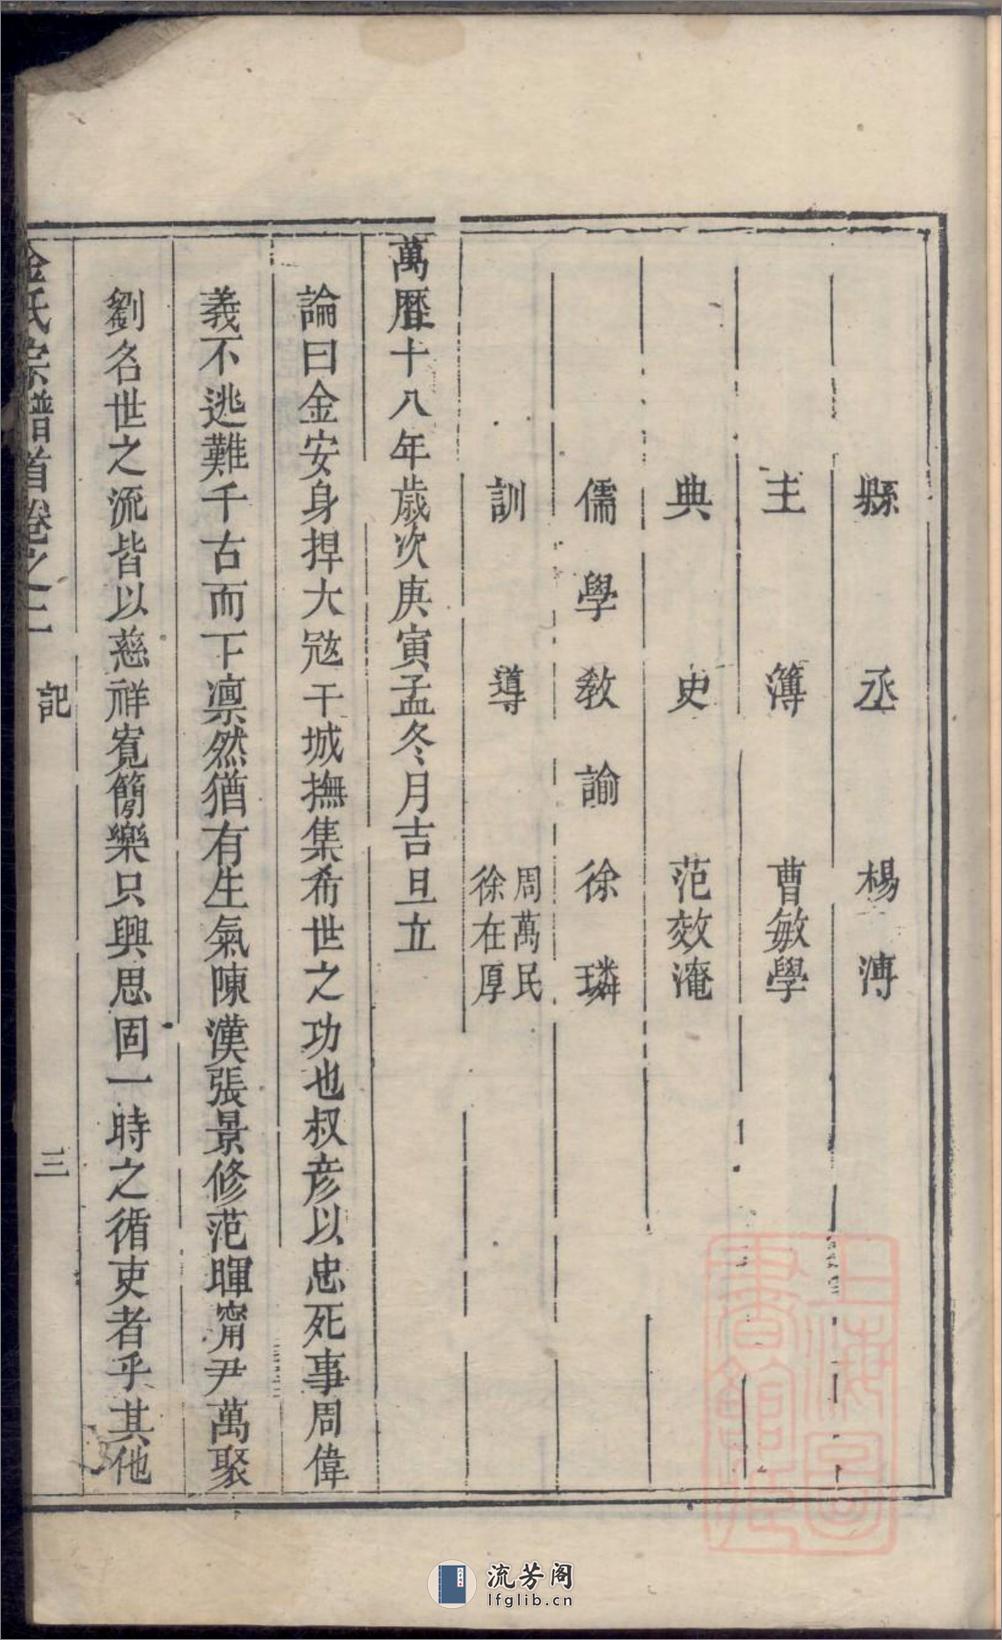 縣丞 楊溥
主簿 曹敏學
典史 范效淹
儒學敎諭 徐璘
訓導 周萬民 徐在厚
萬曆十八年歲次庚寅孟冬月吉旦立
論曰金安身捍大冦干城撫集希世之功也叔彦以忠死事周偉
義不逃難千古而下凛然猶有生氣陳漢張景修范暉甯尹萬聚
劉名世之流皆以慈祥寬簡樂只興思固一時之循吏者乎其他
金氏宗譜首卷之二 記 三
上海圖書館藏
流芳阁
lfglib.cn